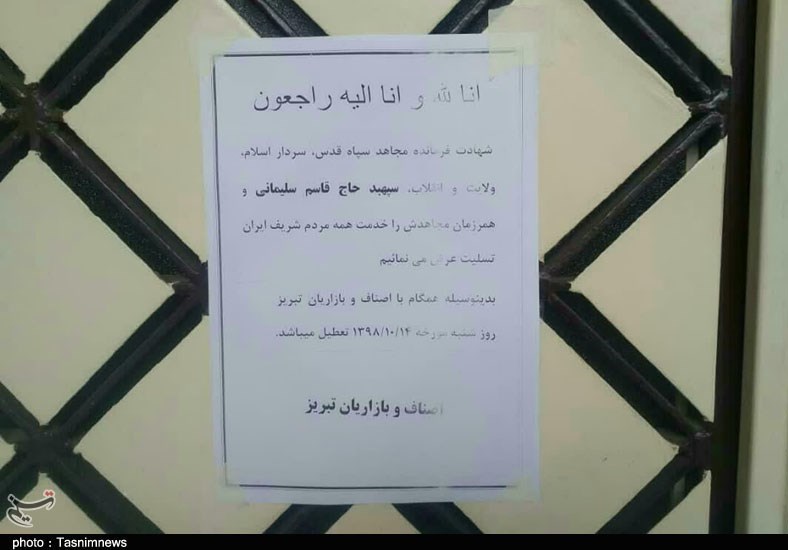 انا لله و انا اليه راجعون
شهادت فرمانده مجاهد سپاه قدس، سردار اسلام،
ولایت و انقلاب، سپهبد حاج قاسم سلیمانی و
همرزمان مجاهدش را خدمت همه مردم شریف ایران
تسلیت عرض می نمائیم
بدینوسیله همگام با اصناف و بازاریان تبریز
روز شنبه مورخه ۱۳۹۸/۱۰/۱۴ تعطیل میباشد.
اصناف و بازاریان تبریز
تسنیم
photo : Tasnimnews